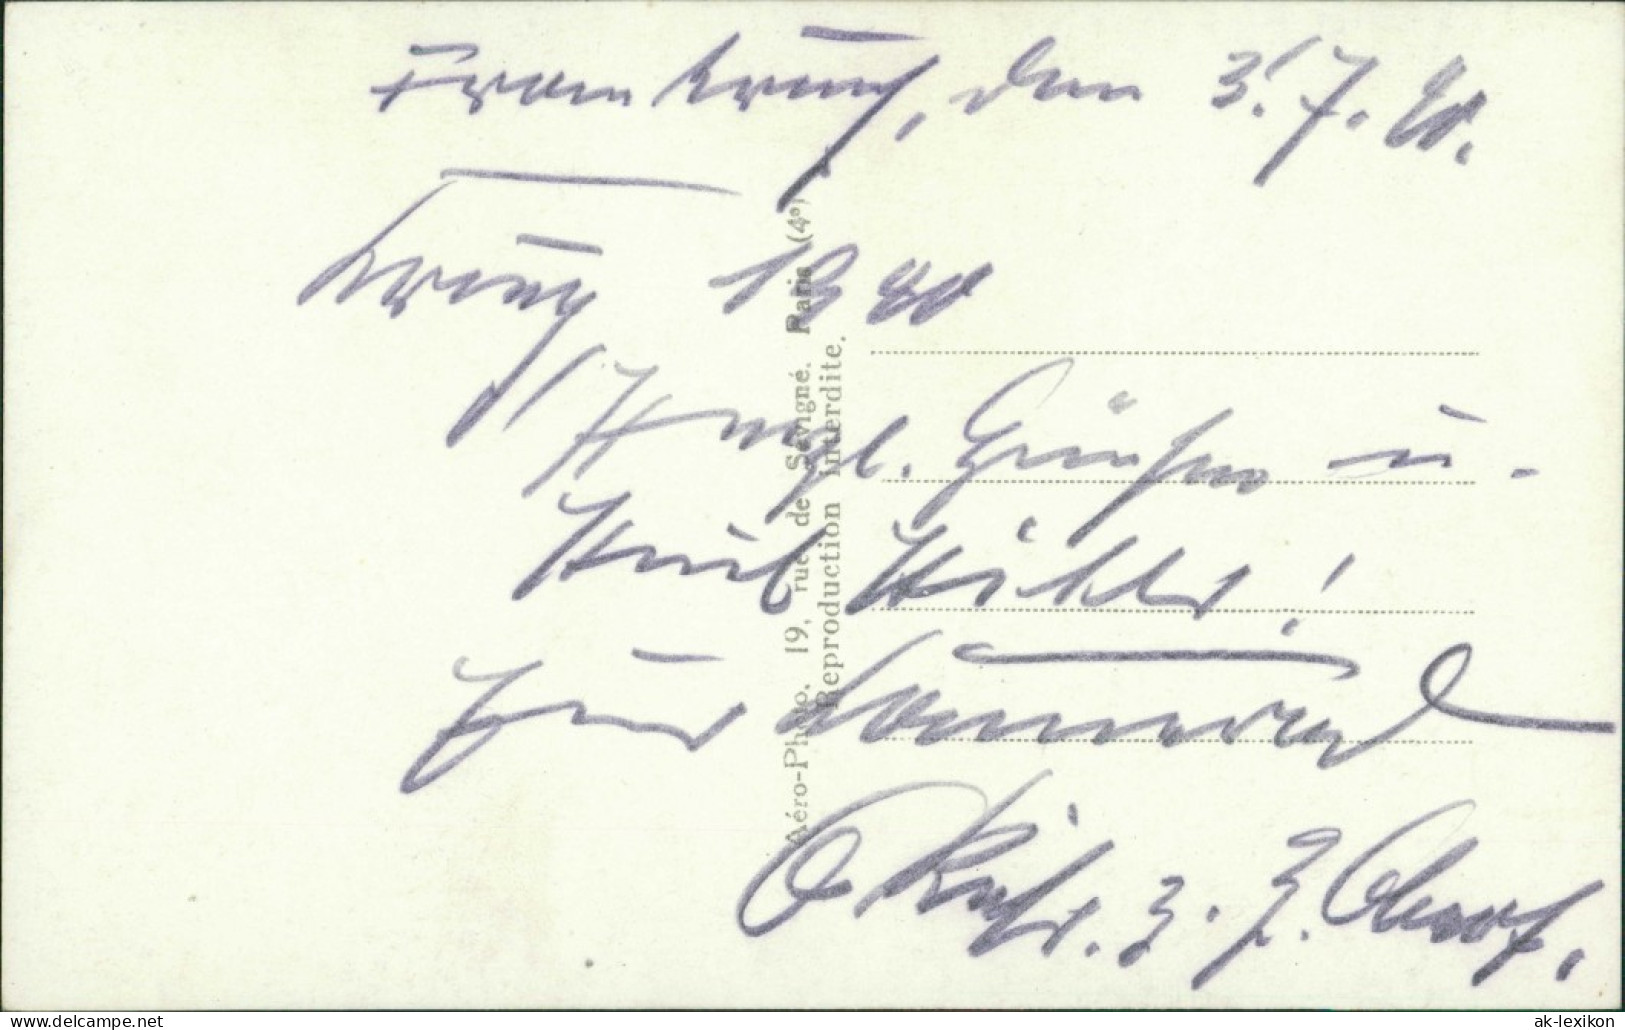 Frankreich, den 3.7.40.
Krieg 1940
Herzl. Grüße u.
Heil Hitler!
Euer Kamerad
z. Z.
Aéro-Photo, 19, rue de Savigné. Paris (4e)
Reproduction Interdite.
delcampe.net
ak-lexikon